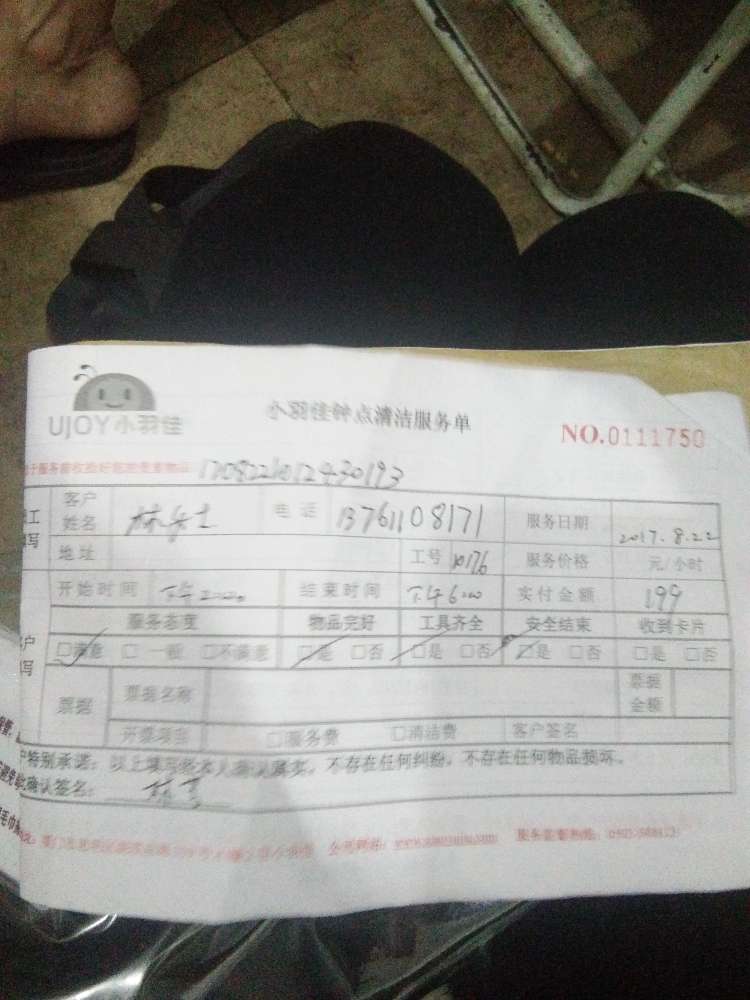 UJOY小羽佳
小羽佳钟点清洁服务单
NO.0111750
客户姓名 林女士 电话 13761108171 服务日期 2017.8.22
地址 工号 10176 服务价格 元/小时
开始时间 下午2:00 结束时间 下午6:00 实付金额 199
服务态度 物品完好 工具齐全 安全结束 收到卡片
□满意 □一般 □不满意 □是 □否 □是 □否 □是 □否 □是 □否
票据 票据名称 票据金额
开票项目 □服务费 □清洁费 客户签名
户特别承诺:以上填写经本人确认属实,不存在任何纠纷,不存在任何物品损坏。
确认签名:
公司网站: 服务监督热线: